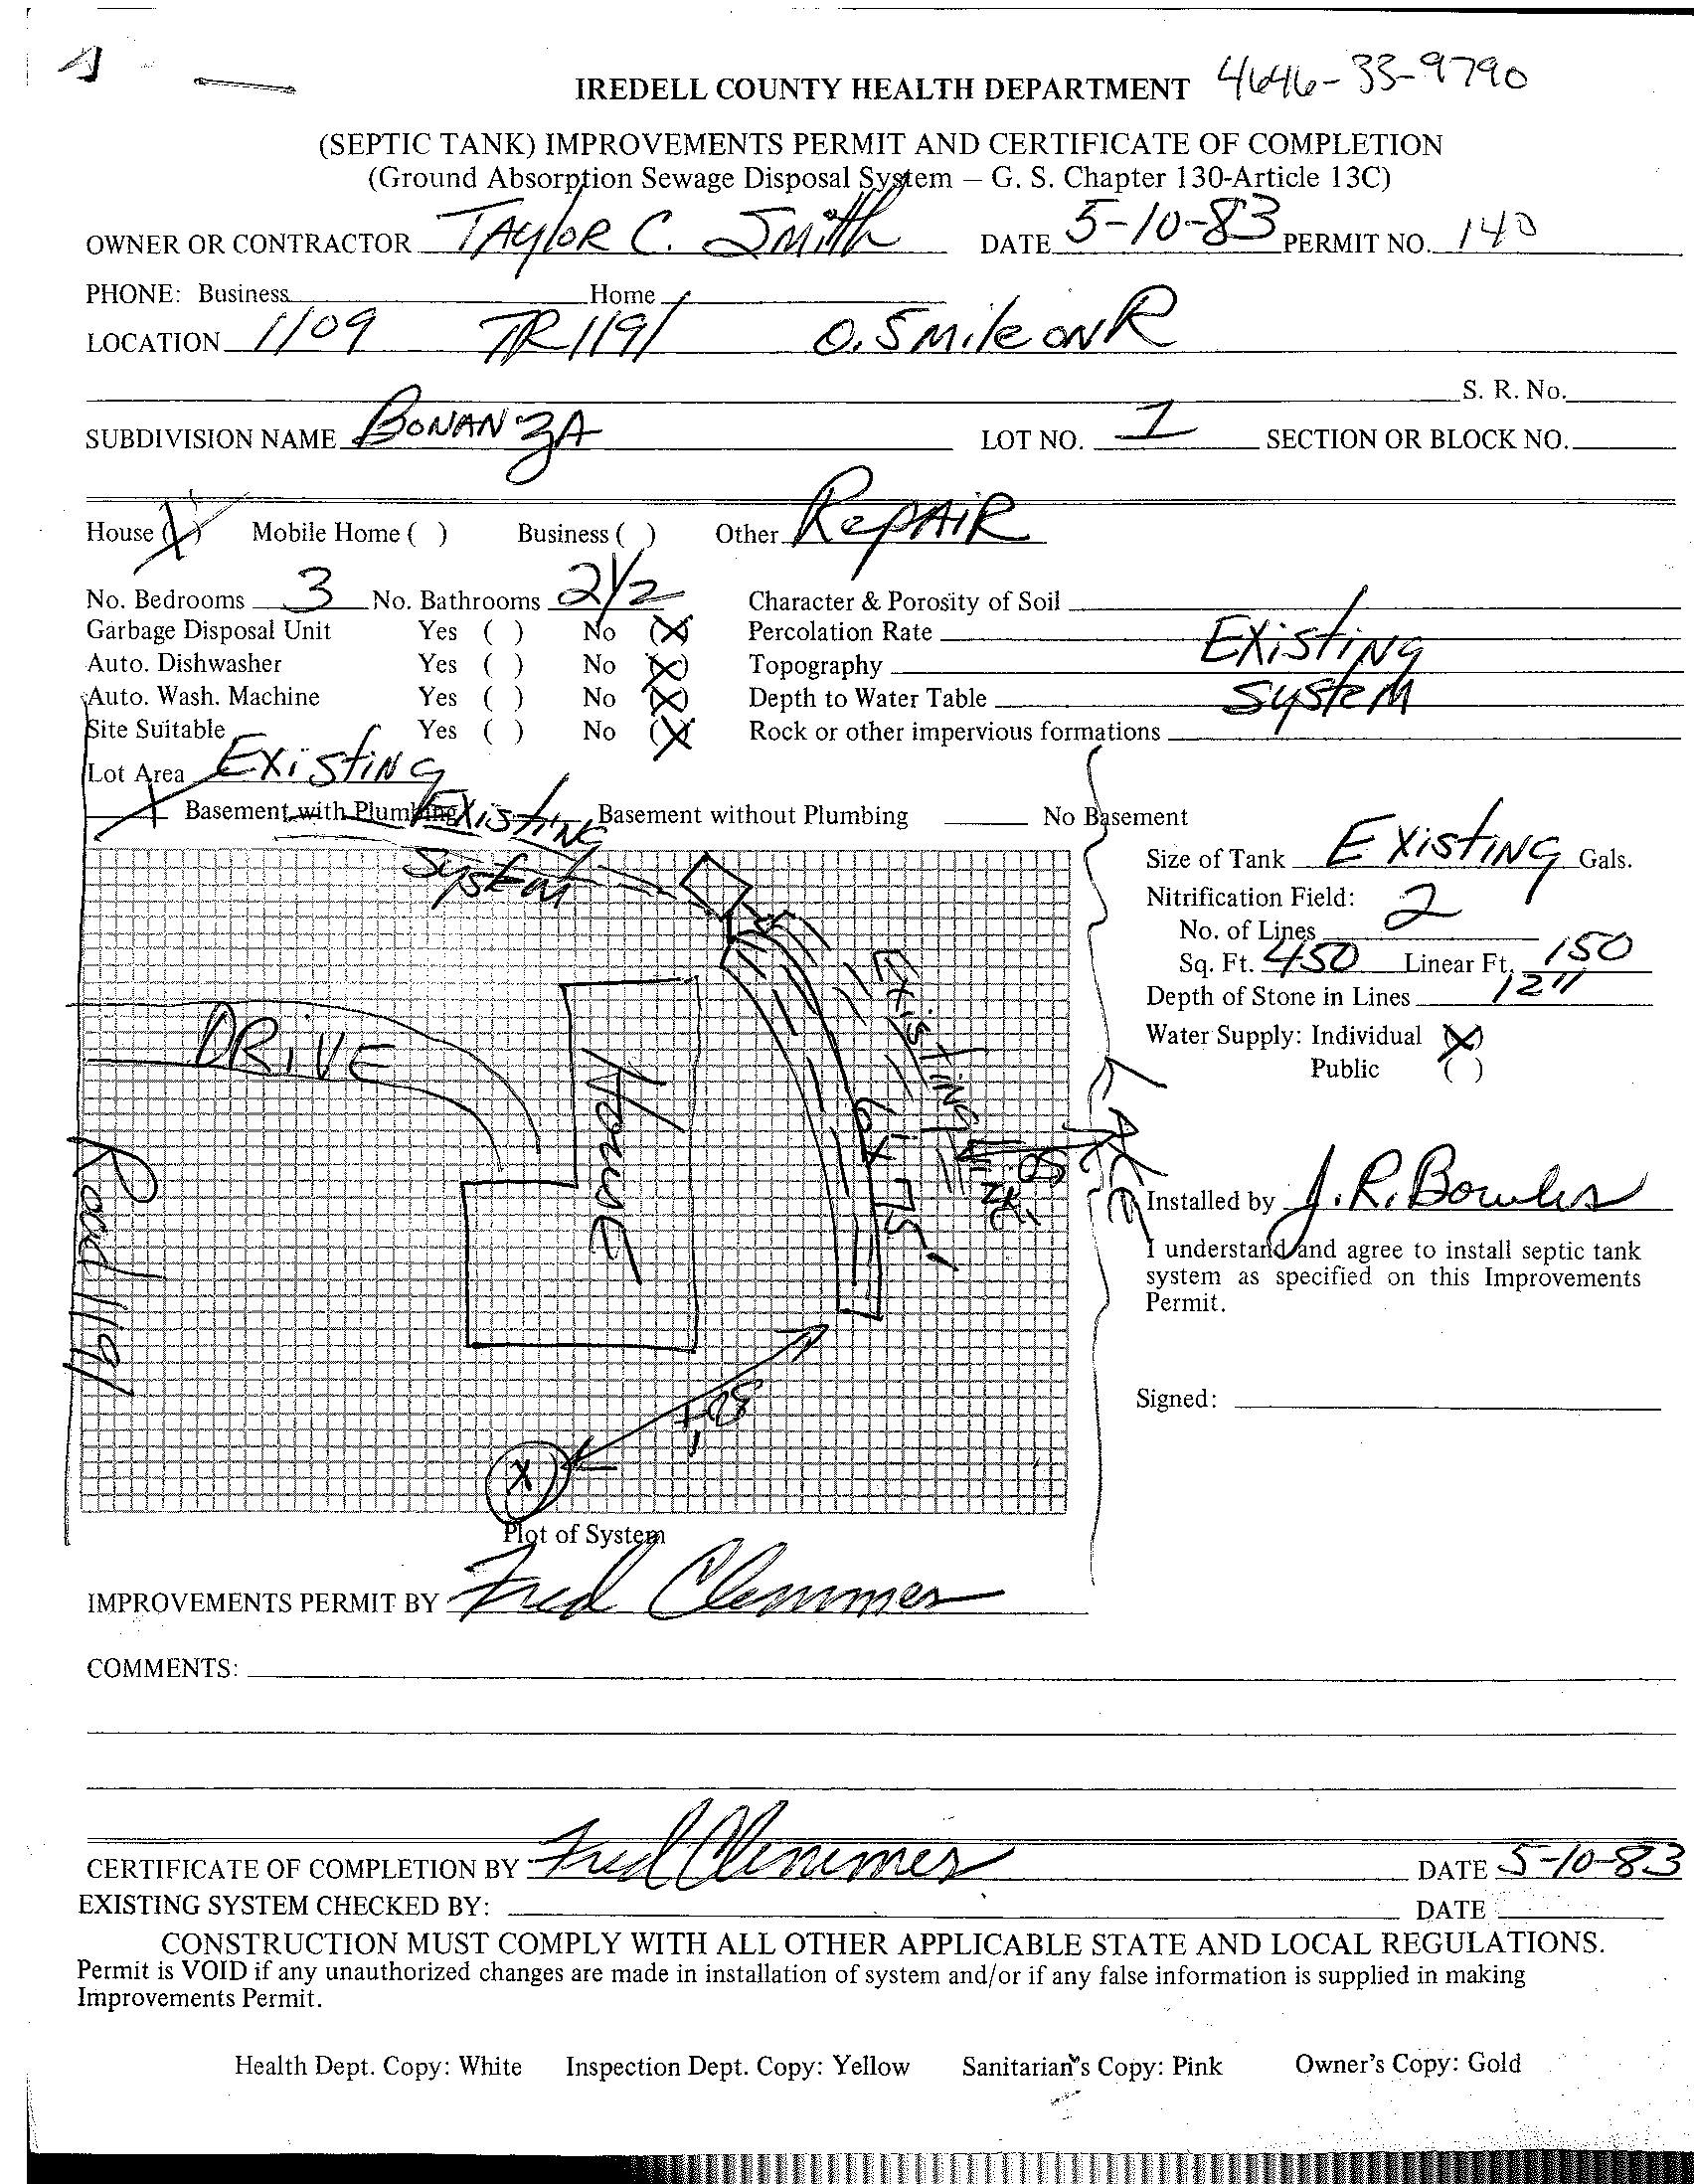 IREDELL COUNTY HEALTH DEPARTMENT 4646-33-9790
(SEPTIC TANK) IMPROVEMENTS PERMIT AND CERTIFICATE OF COMPLETION
(Ground Absorption Sewage Disposal System – G. S. Chapter 130-Article 13C)
OWNER OR CONTRACTOR TAYLOR C. Smith DATE 5-10-83 PERMIT NO. 140
PHONE: Business Home
LOCATION 1109 TR 1191 0.5 Mile ON R
S. R. No.
SUBDIVISION NAME BONANZA LOT NO. 1 SECTION OR BLOCK NO.
House (X) Mobile Home ( ) Business ( ) Other RepAiR
No. Bedrooms 3 No. Bathrooms 2 1/2 Character & Porosity of Soil
Garbage Disposal Unit Yes ( ) No (X) Percolation Rate Existing
Auto. Dishwasher Yes ( ) No (X) Topography
Auto. Wash. Machine Yes ( ) No (X) Depth to Water Table System
Site Suitable Yes ( ) No (X) Rock or other impervious formations
Lot Area Existing
X Basement with Plumbing Basement without Plumbing No Basement
Existing
System
Size of Tank Existing Gals.
Nitrification Field:
No. of Lines 2
Sq. Ft. 450 Linear Ft. 150
Depth of Stone in Lines 12"
Water Supply: Individual (X)
Public ( )
DRIVE
House
Existing
75'
Road 1191
X
Installed by J. R. Bowles
I understand and agree to install septic tank
system as specified on this Improvements
Permit.
Signed:
Plot of System
IMPROVEMENTS PERMIT BY Fred Clemmer
COMMENTS:
CERTIFICATE OF COMPLETION BY Fred Clemmer DATE 5-10-83
EXISTING SYSTEM CHECKED BY: DATE
CONSTRUCTION MUST COMPLY WITH ALL OTHER APPLICABLE STATE AND LOCAL REGULATIONS.
Permit is VOID if any unauthorized changes are made in installation of system and/or if any false information is supplied in making
Improvements Permit.
Health Dept. Copy: White Inspection Dept. Copy: Yellow Sanitarian's Copy: Pink Owner's Copy: Gold